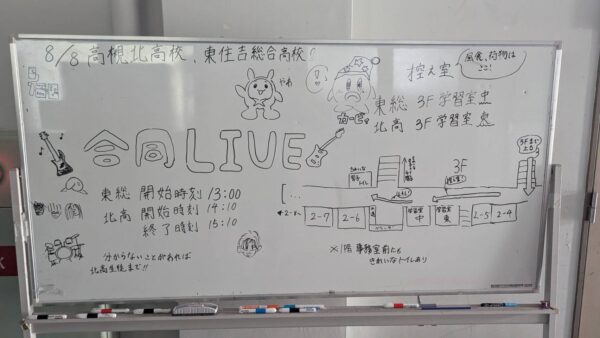 8/8 高槻北高校、東住吉総合高校!
合同LIVE
やあ
カービィ
控え室
昼食、荷物は
ここ!
東総 3F 学習室
北高 3F 学習室
東総 開始時刻 13:00
北高 開始時刻 14:10
終了時刻 15:10
分からないことがあれば
北高生徒まで!!
3F
3Fまで
上る!
きれいな
トイレ
2-7
2-6
学習室
中
学習室
東
2-5
2-4
※1階 事務室前にも
きれいなトイレあり